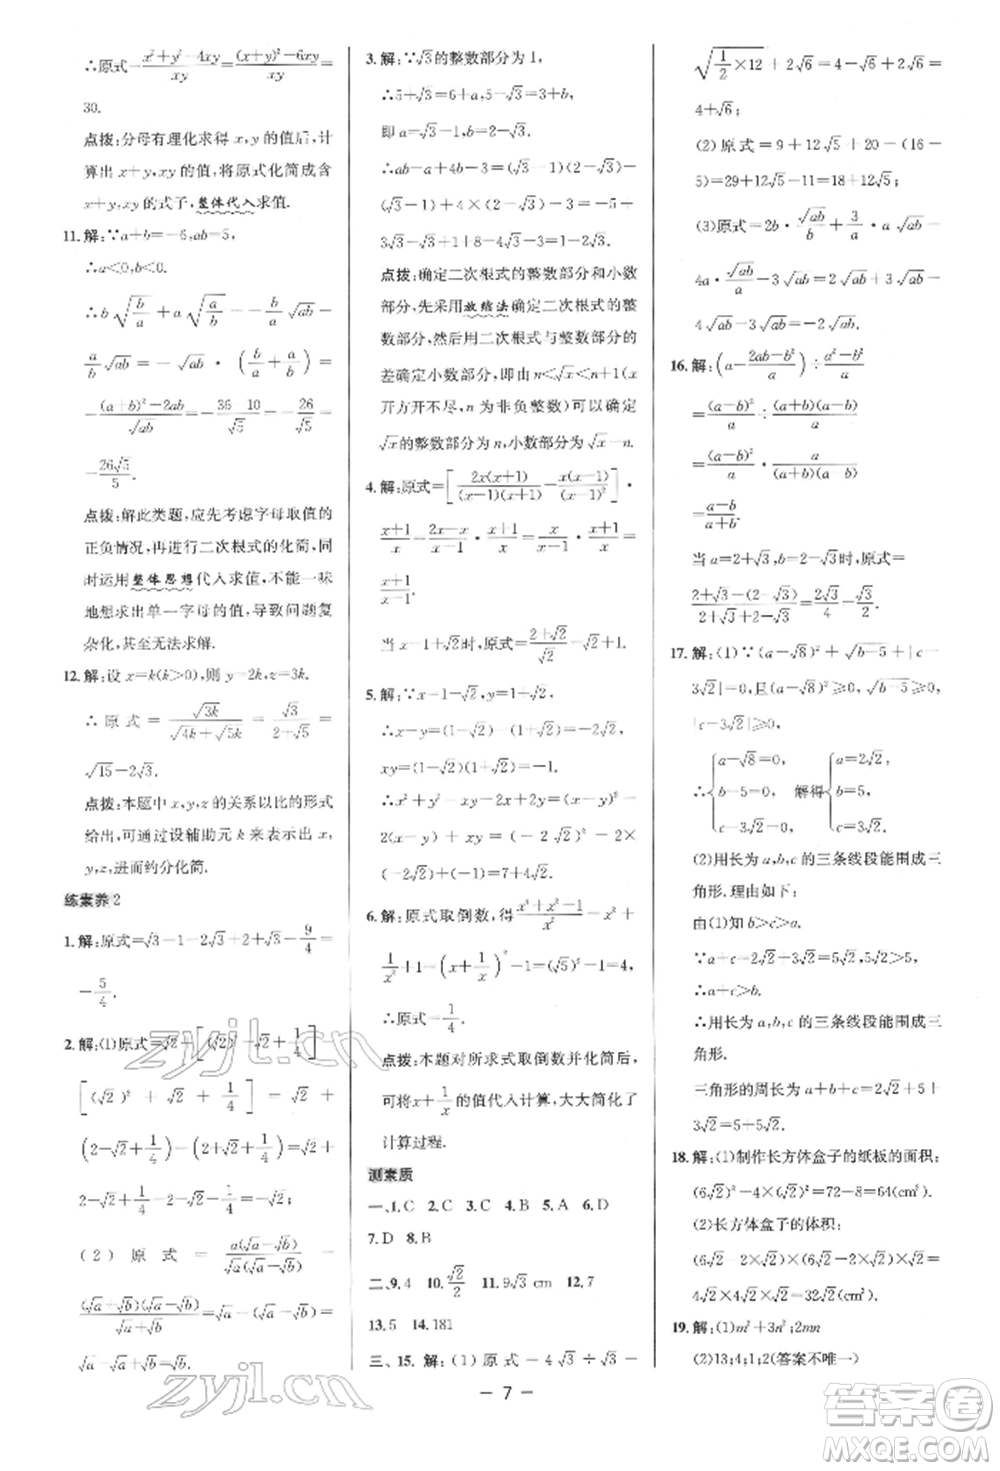 ∴原式=\frac{x²+y²-4xy}{xy}=\frac{(x+y)²-6xy}{xy}=
30.
点拨:分母有理化求得 x,y 的值后,计
算出 x+y,xy 的值,将原式化简成含
x+y,xy 的式子,整体代入求值.
11.解:∵a+b=-6,ab=5,
∴a<0,b<0.
∴b√(b/a)+a√(a/b)=-\frac{b}{a}√ab-
\frac{a}{b}√ab=-√ab·(\frac{b}{a}+\frac{a}{b})=
-\frac{(a+b)²-2ab}{√ab}=-\frac{36-10}{√5}=
-\frac{26√5}{5}.
点拨:解此类题,应先考虑字母取值的
正负情况,再进行二次根式的化简,同
时运用整体思想代入求值,不能一味
地想求出单一字母的值,导致问题复
杂化,甚至无法求解.
12.解:设 x=k(k>0),则 y=2k,z=3k.
∴原式=\frac{√3k}{√4k+√5k}=\frac{√3}{2+√5}=
√15-2√3.
点拨:本题中 x,y,z 的关系以比的形式
给出,可通过设辅助元 k 来表示出 x,
y,z,进而约分化简.
练素养2
1.解:原式=√3-1-2√3+2+√3-\frac{9}{4}=
-\frac{5}{4}.
2.解:(1)原式=√2+[(√2)²-√2+\frac{1}{4}]
[(√2)²+√2+\frac{1}{4}]=√2+
(2-√2+\frac{1}{4})-(2+√2+\frac{1}{4})=√2+
2-√2+\frac{1}{4}-2-√2-\frac{1}{4}=-√2.
(2)原式=\frac{a(√a-√b)}{√a(√a-√b)}-
\frac{(√a+√b)(√a-√b)}{√a+√b}=√a-(√a-√b)
=√a-√a+√b=√b.
3.解:∵√3的整数部分为 1,
∴5+√3=6+a,5-√3=3+b,
即 a=√3-1,b=2-√3.
∴ab-a+4b-3=(√3-1)(2-
√3)-(√3-1)+4(2-√3)-3=2√3-
3-2+√3-√3+1+8-4√3-3=1-
2√3.
点拨:确定二次根式的整数部分和小数
部分,先采用放缩法确定二次根式的整
数部分,然后用二次根式与整数部分的
差确定小数部分,即由 n<√x<n+1(x
开方开不尽,n 为非负整数)可以确定
√x的整数部分为 n,小数部分为√x-n.
4.解:原式=[\frac{2x(x+1)}{(x-1)(x+1)}-\frac{x(x-1)}{(x-1)²}]·
\frac{x+1}{x}=\frac{2x-x}{x-1}·\frac{x+1}{x}=\frac{x}{x-1}·\frac{x+1}{x}=
\frac{x+1}{x-1}.
当 x=1+√2时,原式=\frac{2+√2}{√2}=√2+1.
5.解:∵x=1-√2,y=1+√2,
∴x-y=(1-√2)-(1+√2)=-2√2,
xy=(1-√2)(1+√2)=-1.
∴x²+y²-xy-2x+2y=(x-y)²-
2(x-y)+xy=(-2√2)²-2×
(-2√2)+(-1)=7+4√2.
6.解:原式取倒数,得\frac{x⁴+x²-1}{x²}=x²+
\frac{1}{x²}+1=(x+\frac{1}{x})²-1=(√5)²-1=4.
∴原式=\frac{1}{4}.
点拨:本题对所求式取倒数并化简后,
可将 x+\frac{1}{x}的值代入计算,大大简化了
计算过程.
测素质
一、1.C 2.C 3.C 4.A 5.A 6.D
7.D 8.B
二、9.4 10.\frac{√2}{2} 11.9√3 cm 12.7
13.5 14.181
三、15.解:(1)原式=4√3÷√3-
√(\frac{1}{2}×12)+2√6=4-√6+2√6=
4+√6.
(2)原式=9+12√5+20-(16-
5)=29+12√5-11=18+12√5;
(3)原式=2b·\frac{√ab}{b}+\frac{3}{a}·a√ab-
4a·\frac{√ab}{a}-3√ab=2√ab+3√ab-
4√ab-3√ab=-2√ab.
16.解:(a-\frac{2ab-b²}{a})÷\frac{a²-b²}{a}
=\frac{(a-b)²}{a}÷\frac{(a+b)(a-b)}{a}
=\frac{(a-b)²}{a}·\frac{a}{(a+b)(a-b)}
=\frac{a-b}{a+b}.
当 a=2+√3,b=2-√3时,原式=
\frac{2+√3-(2-√3)}{2+√3+2-√3}=\frac{2√3}{4}=\frac{√3}{2}.
17.解:(1)∵(a-√8)²+√(b-5)+|c-
3√2|=0,且(a-√8)²≥0,√(b-5)≥0,
|c-3√2|≥0,
∴{a-√8=0, b-5=0, c-3√2=0, 解得{a=2√2, b=5, c=3√2.
(2)用长为 a,b,c 的三条线段能围成三
角形.理由如下:
由(1)知 b>c>a.
∵a+c=2√2+3√2=5√2>5,
∴a+c>b.
∴用长为 a,b,c 的三条线段能围成三
角形.
三角形的周长为 a+b+c=2√2+5+
3√2=5+5√2.
18.解:(1)制作长方体盒子的纸板的面积:
(6√2)²-4×(√2)²=72-8=64(cm²).
(2)长方体盒子的体积:
(6√2-2√2)×(6√2-2√2)×√2=
4√2×4√2×√2=32√2(cm³).
19.解:(1)m²+3n²;2mn
(2)13;4;1;2(答案不唯一)
— 7 —
zyjl.cn
zyjl.cn
答案圈
MXQE.COM